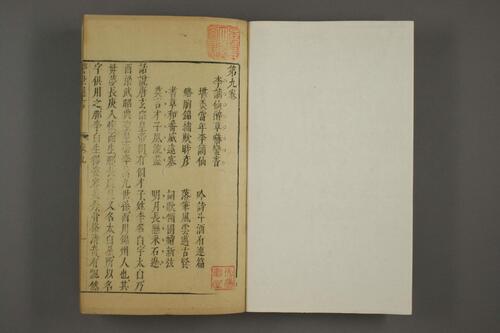 第九卷
李謫仙醉草嚇蠻書
堪羨當年李謫仙　吟詩斗酒有連篇
蟠胸錦繡欺時彥　落筆風雲邁古賢
書草和番威遠塞　詞歌傾國媚新弦
莫言才子風流盡　明月長懸采石邊
話說唐玄宗皇帝朝有個才子姓李名白字太白乃
西梁武昭興聖皇帝李暠九世孫西川綿州人也其
母夢長庚入懷而生那長庚星又名太白星所以名
字俱用之那李白生得姿容美秀骨格清奇有飄然